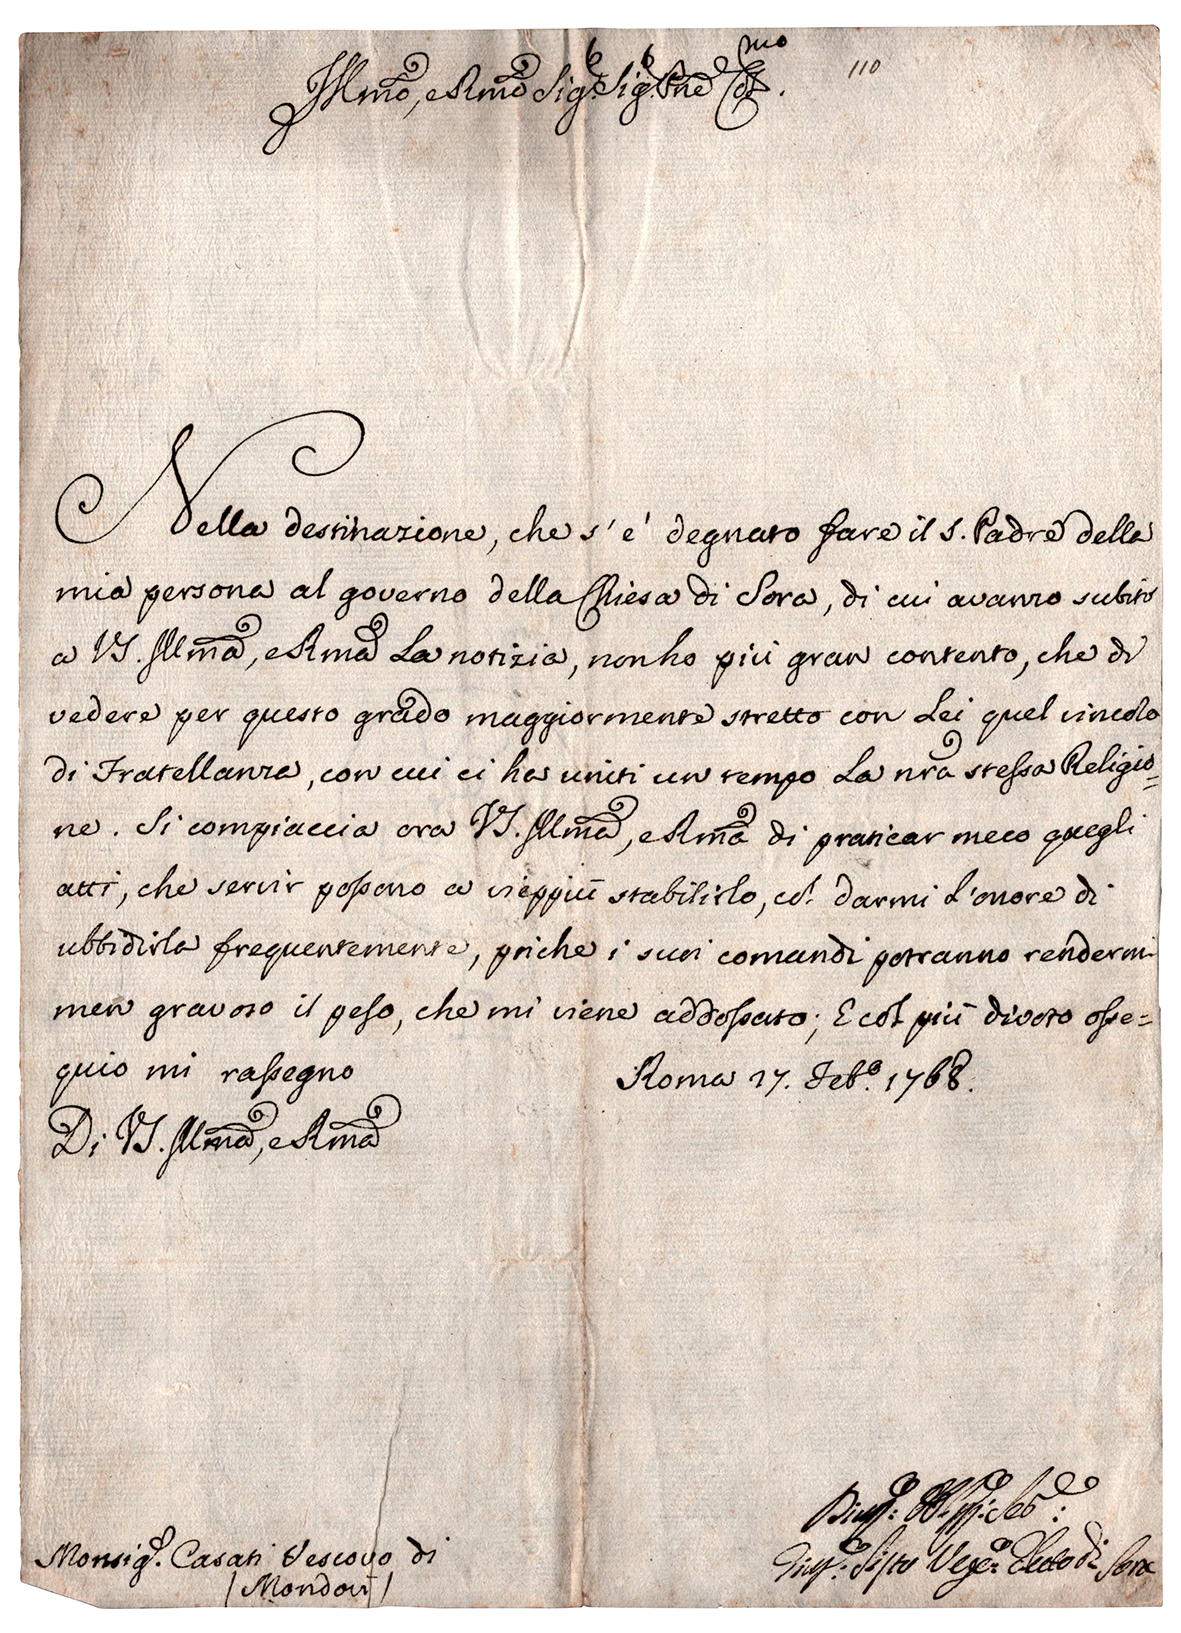 Illmo, e Rmo Sig.r Sig.r Pne Colmo.
110
Nella destinazione, che s' e' degnato fare il S. Padre della
mia persona al governo della Chiesa di Sora, di cui avanzo subito
a VS. Illma, e Rma La notizia, non ho più gran contento, che di
vedere per questo grado maggiormente stretto con Lei quel vincolo
di Fratellanza, con cui ci ha uniti un tempo La nra stessa Religio=
ne. Si compiaccia ora VS. Illma, e Rma di praticar meco quegli
atti, che servir possono a vieppiù stabilirlo, col darmi L'onore di
ubbidirla frequentemente, poiche i suoi comandi potranno rendermi
men gravoso il peso, che mi viene addossato; E col più divoto osse=
quio mi rassegno
Roma 27. Feb.o 1768.
Di VS. Illma, e Rma
Sisto Elett di Sora
Monsig.r Casati Vescovo di
(Mondovì)